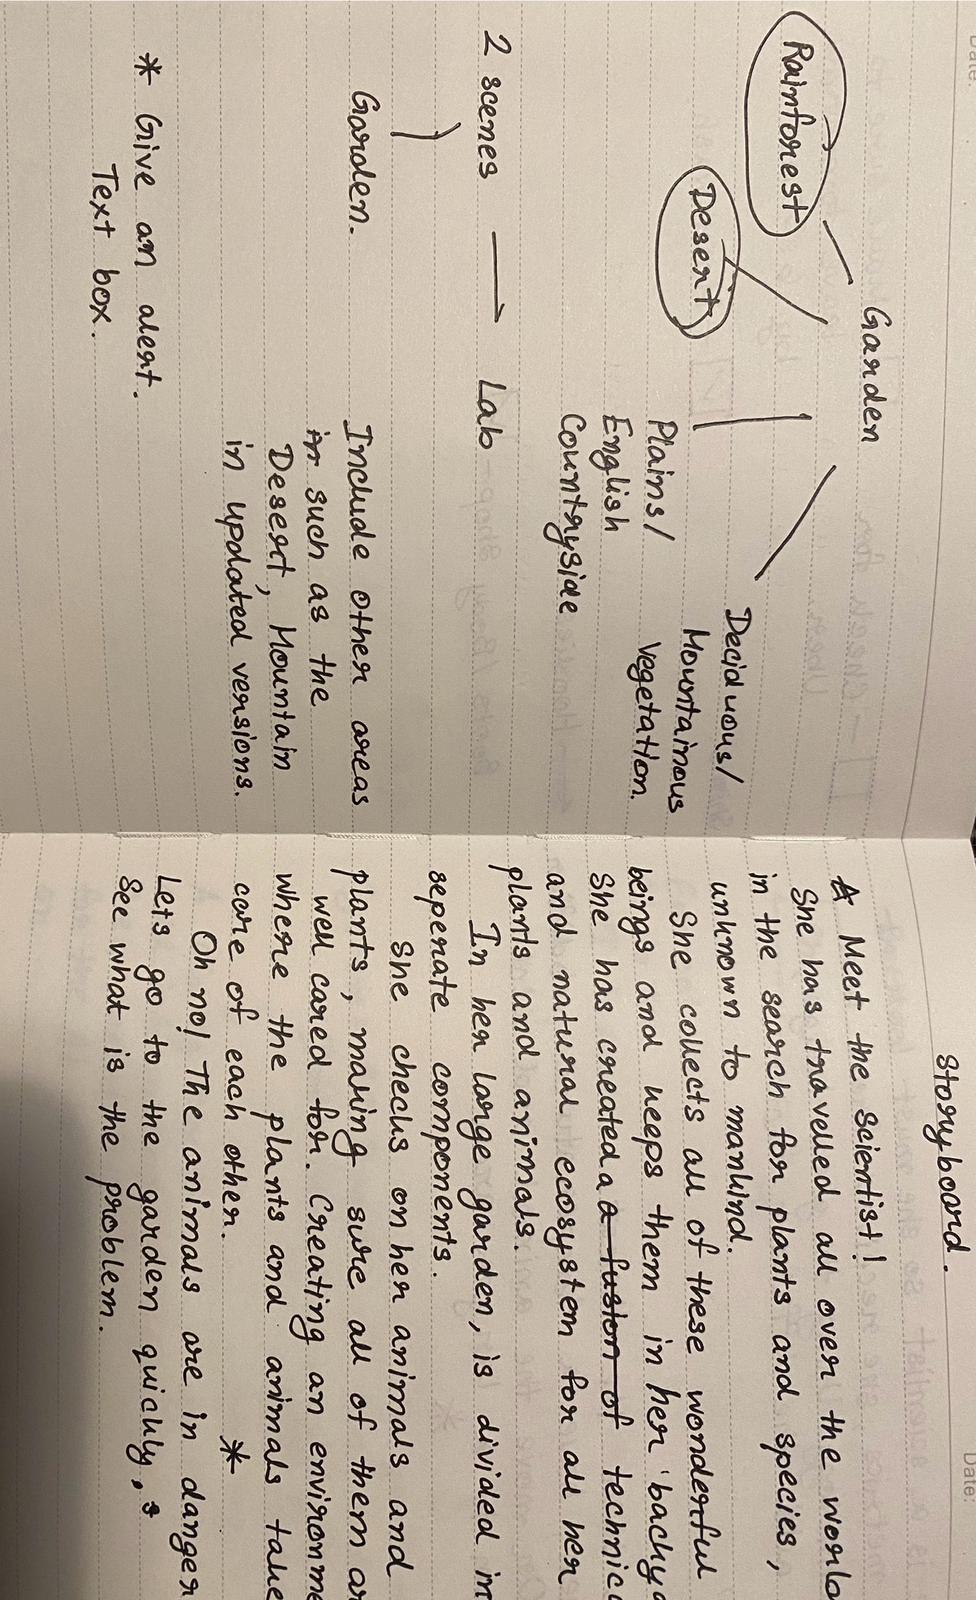 Date:
Garden
Rainforest
Desert
Plains/
English
Countryside
Deciduous/
Mountainous
Vegetation.
2 scenes → Lab
Garden.
Include other areas
in such as the
Desert, Mountain
in updated versions.
* Give an alert.
Text box.
Date:
Storyboard.
A Meet the scientist!
She has travelled all over the world
in the search for plants and species,
unknown to mankind.
She collects all of these wonderful
beings and keeps them in her backya
She has created a a fusion of technica
and natural ecosystem for all her
plants and animals.
In her large garden, is divided in
seperate components.
She checks on her animals and
plants, making sure all of them ar
well cared for. Creating an environme
where the plants and animals take
care of each other. *
Oh no! The animals are in danger
Lets go to the garden quickly, s
See what is the problem.